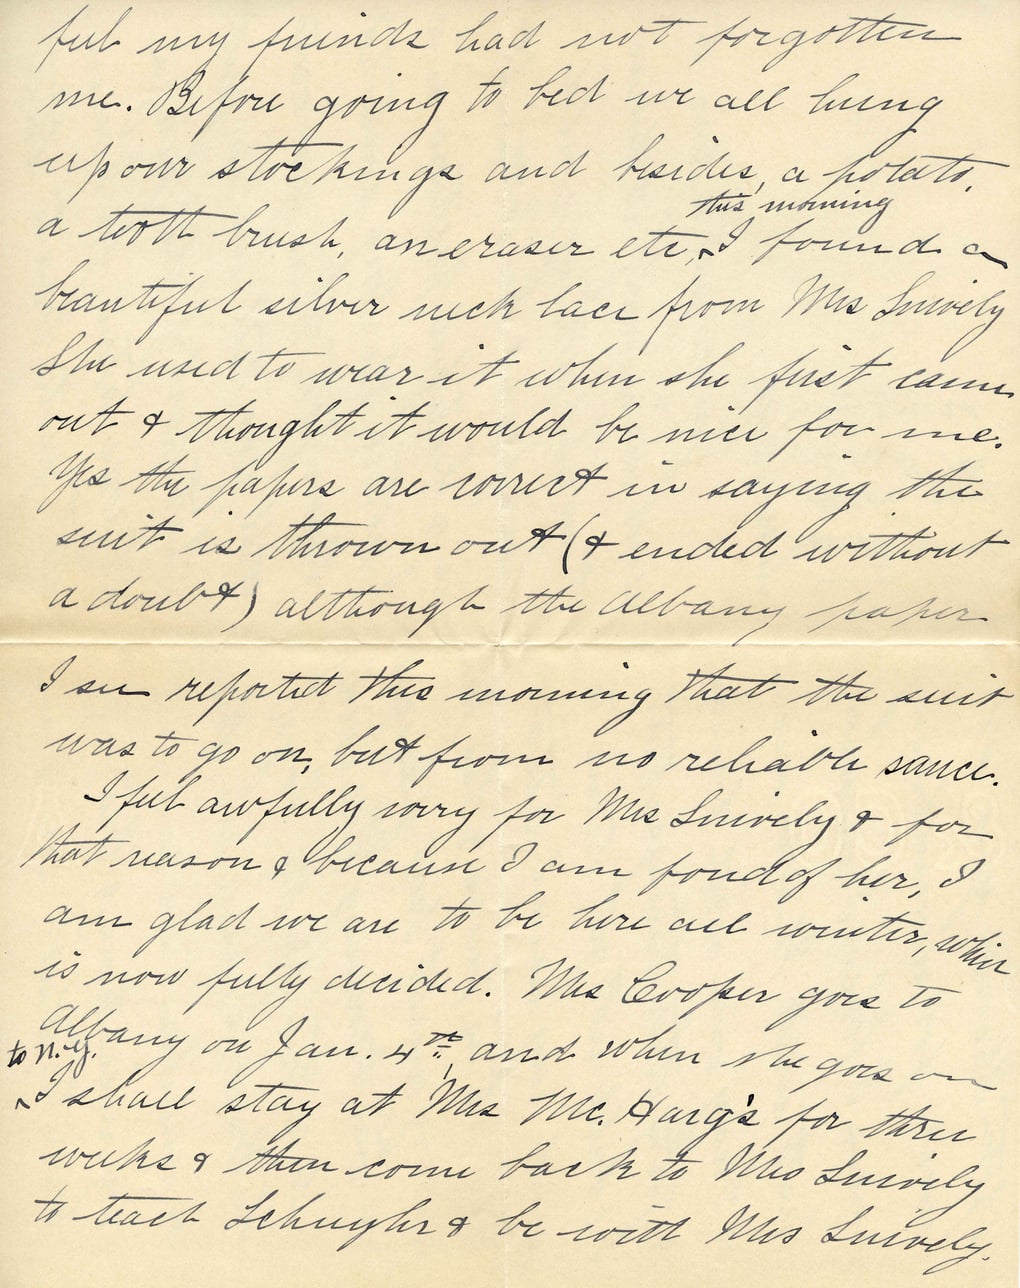 feel my friends had not forgotten
me. Before going to bed we all hung
up our stockings and besides, a potato,
this morning
a tooth brush, an eraser etc, ^I found a
beautiful silver neck lace from Mrs Snively
She used to wear it when she first came
out & thought it would be nice for me.
Yes the papers are correct in saying the
suit is thrown out (& ended without
a doubt) although the Albany paper
I see reported this morning that the suit
was to go on, but from no reliable sauce.
I feel awfully sorry for Mrs Snively & for
that reason & because I am fond of her, I
am glad we are to be here all winter, which
is now fully decided. Mrs Cooper goes to
Albany on Jan. 4th, and when she goes on
to N.Y.
^I shall stay at Mrs Mc. Harg's for three
weeks & then come back to Mrs Snively
to teach Schuyler & be with Mrs Snively.